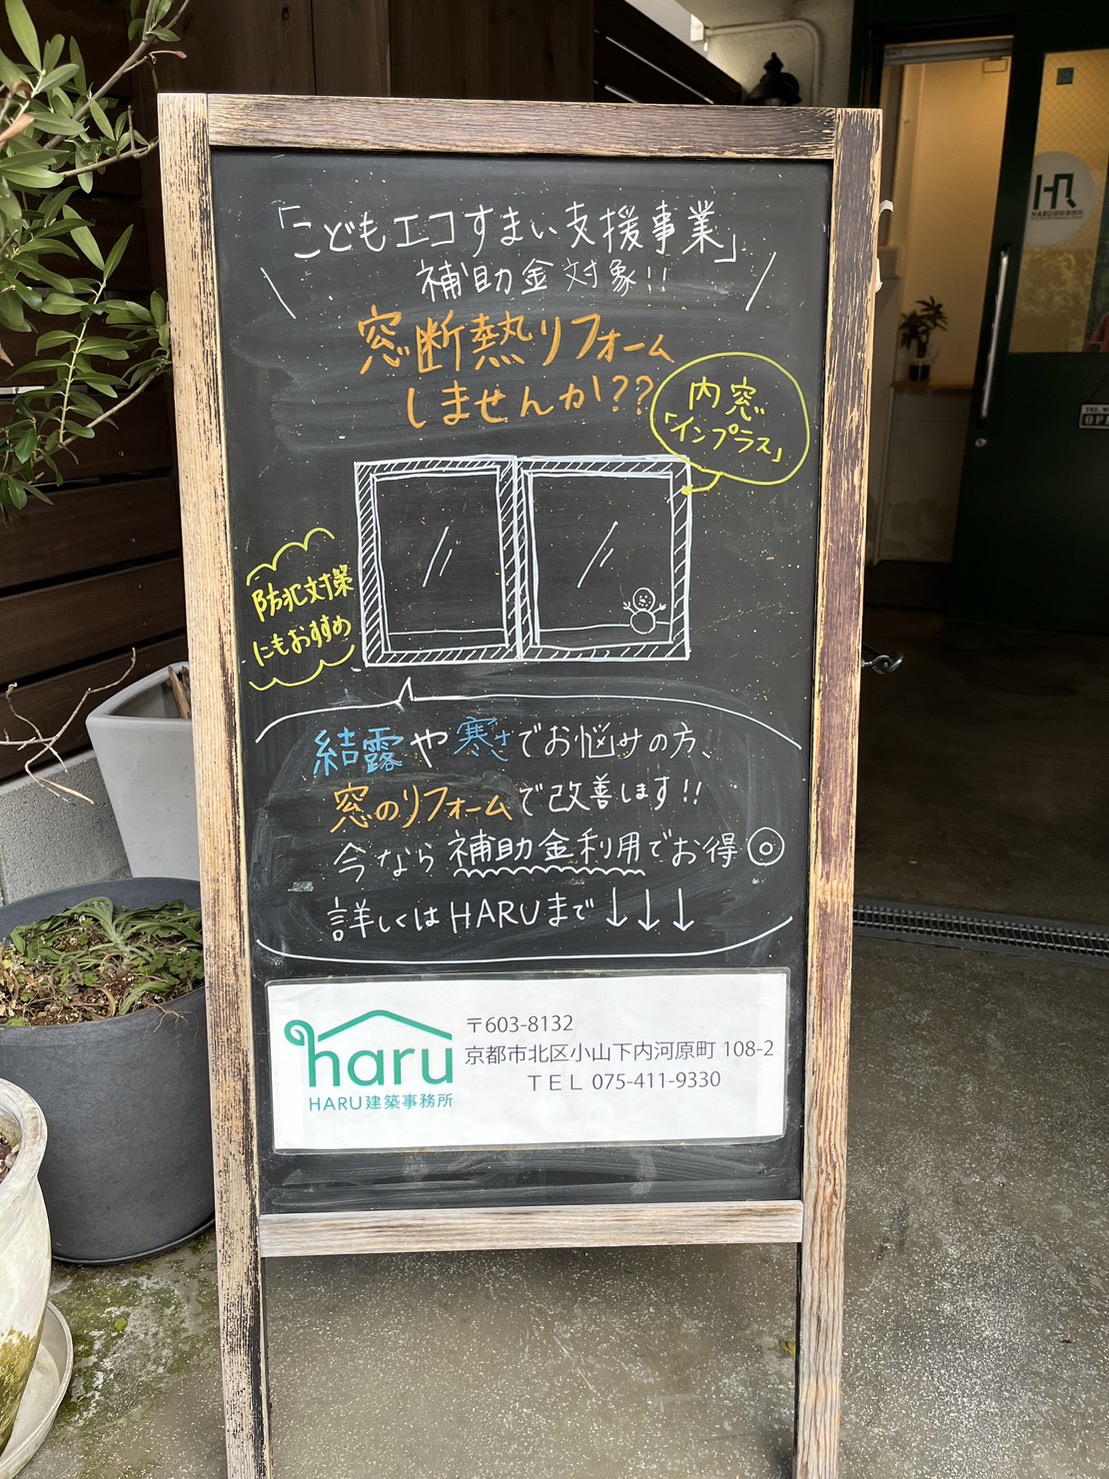 「こどもエコすまい支援事業」
補助金対象!!
窓断熱リフォーム
しませんか??
内窓
「インプラス」
防犯対策
にもおすすめ
結露や寒さでお悩みの方、
窓のリフォームで改善します!!
今なら補助金利用でお得◎
詳しくはHARUまで↓↓↓
haru
HARU建築事務所
〒603-8132
京都市北区小山下内河原町 108-2
TEL 075-411-9330
HARU建築事務所